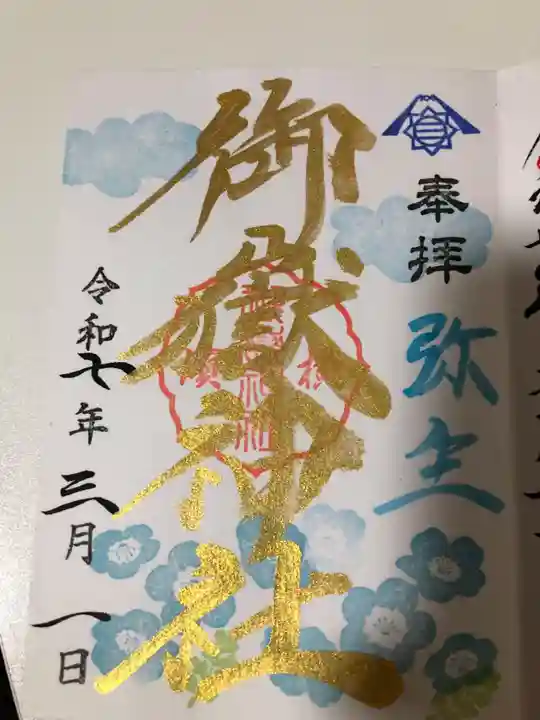 奉拝
弥生
御嶽神社
令和七年三月一日